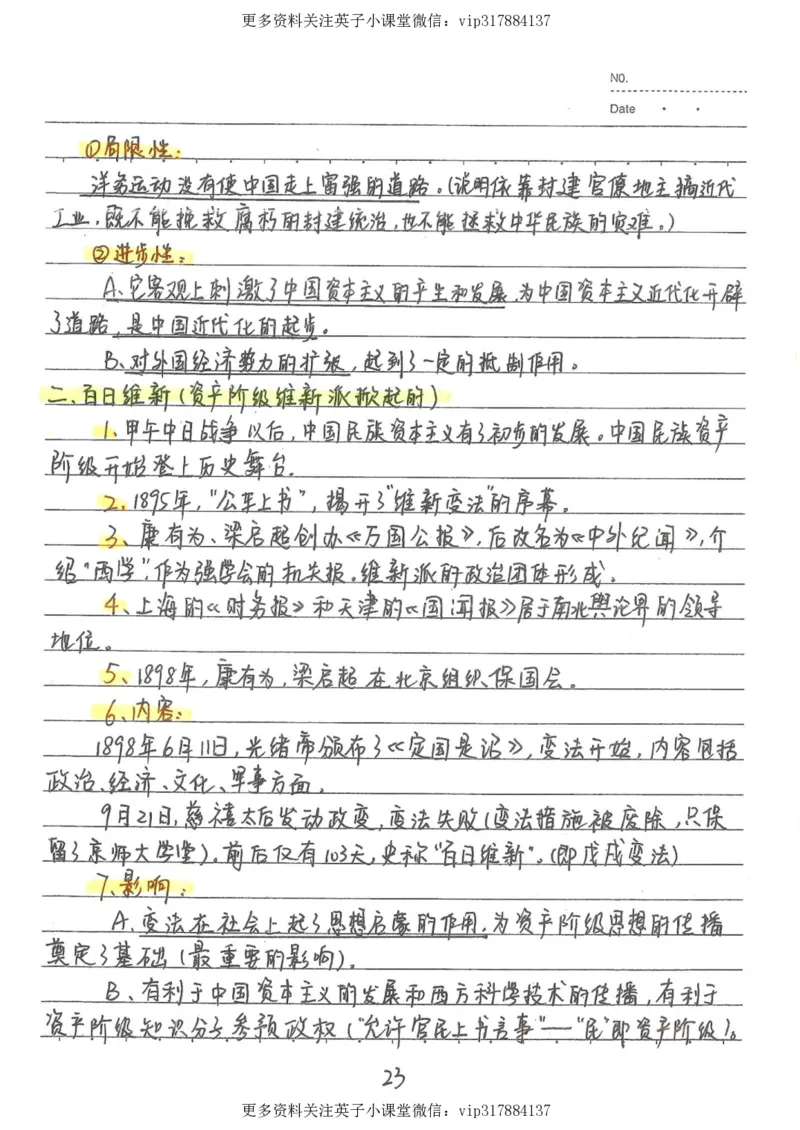 更多资料关注英子小课堂微信：vip317884137
NO.
Date
①局限性：
洋务运动没有使中国走上富强的道路。(说明依靠封建官僚地主搞近代
工业，既不能挽救腐朽的封建统治，也不能拯救中华民族的灾难。)
②进步性：
A、它客观上刺激了中国资本主义的产生和发展，为中国资本主义近代化开辟
了道路，是中国近代化的起步。
B、对外国经济势力的扩张，起到了一定的抵制作用。
二、百日维新(资产阶级维新派掀起的)
1、甲午中日战争以后，中国民族资本主义有了初步的发展。中国民族资产
阶级开始登上历史舞台。
2、1895年，"公车上书"，揭开了"维新变法"的序幕。
3、康有为、梁启超创办《万国公报》，后改名为《中外纪闻》，介
绍"西学"，作为强学会的机关报。维新派的政治团体形成。
4、上海的《时务报》和天津的《国闻报》居于南北舆论界的领导
地位。
5、1898年，康有为，梁启超在北京组织保国会。
6、内容：
1898年6月11日，光绪帝颁布了《定国是诏》，变法开始，内容包括
政治、经济、文化、军事方面。
9月21日，慈禧太后发动政变，变法失败(变法措施被废除，只保
留了京师大学堂)。前后仅有103天，史称"百日维新"。(即戊戌变法)
7、影响：
A、变法在社会上起了思想启蒙的作用，为资产阶级思想的传播
奠定了基础(最重要的影响)。
B、有利于中国资本主义的发展和西方科学技术的传播，有利于
资产阶级知识分子参预政权("允许官民上书言事"——"民"即资产阶级)。
23
更多资料关注英子小课堂微信：vip317884137